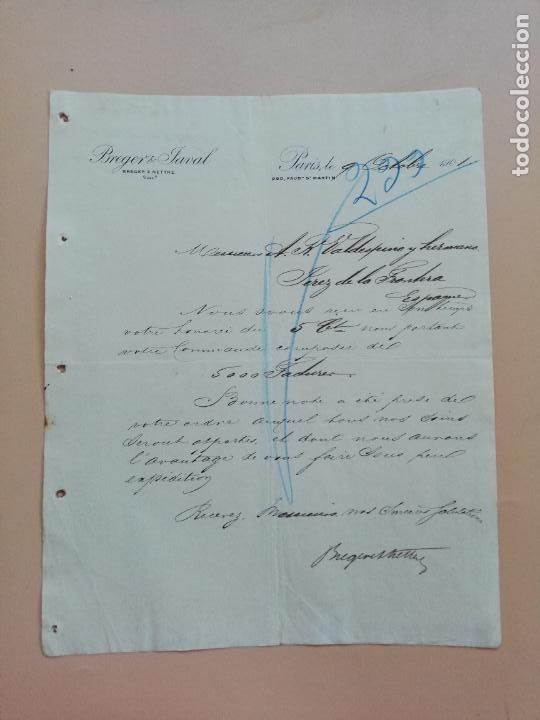 Breger & Javal
BREGER & NETTRE
Succrs
Paris, le 9 Octobre 1901
200, FAUBg St MARTIN
257
Messieurs A. R. Valdespino y hermano
Jerez de la Frontera
Espagne
Nous avons reçu en son temps
votre honorée du 5 Ct nous portant
votre Commande composée de
5000 Factures
Bonne note a été prise de
votre ordre auquel tous nos soins
seront apportés, et dont nous aurons
l'avantage de vous faire sous peu
expédition
Recevez, Messieurs nos Sincères Salutations
Breger & Nettre
todocoleccion.net